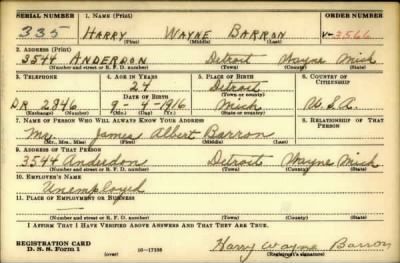 SERIAL NUMBER 1. NAME (Print) ORDER NUMBER
335 HARRY WAYNE BARRON V-3566
(First) (Middle) (Last)
2. ADDRESS (Print)
3544 ANDERDON Detroit Wayne Mich
(Number and street or R. F. D. number) (Town) (County) (State)
3. TELEPHONE 4. AGE IN YEARS 5. PLACE OF BIRTH 6. COUNTRY OF CITIZENSHIP
24 Detroit
DATE OF BIRTH (Town or county)
DR 2846 9-4-1916 Mich U.S.A.
(Exchange) (Number) (Mo.) (Day) (Yr.) (State or country)
7. NAME OF PERSON WHO WILL ALWAYS KNOW YOUR ADDRESS 8. RELATIONSHIP OF THAT PERSON
Mr. James Albert Barron
(Mr., Mrs., Miss) (First) (Middle) (Last)
9. ADDRESS OF THAT PERSON
3544 Anderdon Detroit Wayne Mich
(Number and street or R. F. D. number) (Town) (County) (State)
10. EMPLOYER'S NAME
Unemployed
11. PLACE OF EMPLOYMENT OR BUSINESS
—
(Number and street or R. F. D. number) (Town) (County) (State)
I AFFIRM THAT I HAVE VERIFIED ABOVE ANSWERS AND THAT THEY ARE TRUE.
REGISTRATION CARD
D. S. S. Form 1 (over) 16-17105 Harry Wayne Barron
(Registrant's signature)